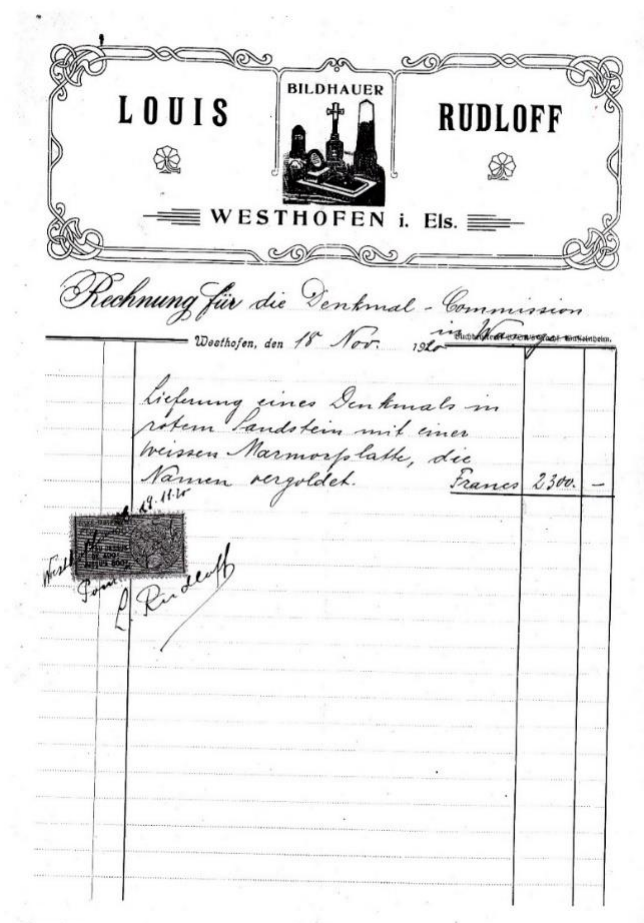 BILDHAUER
LOUIS RUDLOFF
WESTHOFEN i. Els.
Rechnung für die Denkmal-Commission
in Wangen
Westhofen, den 18 Nov. 1920
Lieferung eines Denkmals in
rotem Sandstein mit einer
weissen Marmorplatte, die
Namen vergoldet. Francs 2300. –
29.11.20
L. Rudloff